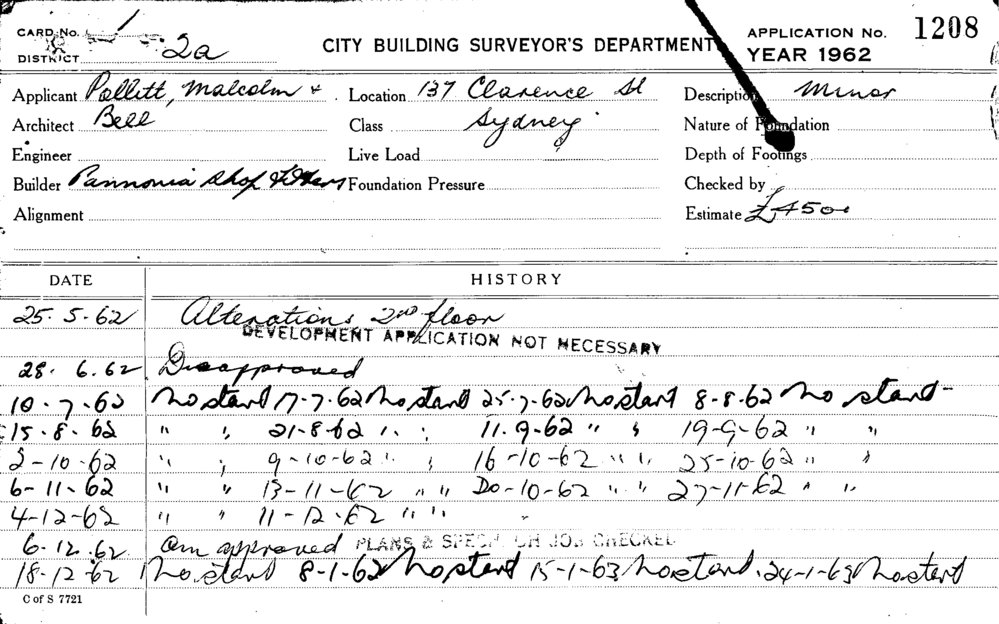 CARD No. 1
DISTRICT 2a
CITY BUILDING SURVEYOR'S DEPARTMENT
APPLICATION No. 1208
YEAR 1962
Applicant Pollitt, Malcolm & Location 137 Clarence St Description Minor
Architect Bell Class Sydney Nature of Foundation
Engineer Live Load Depth of Footings
Builder Pannonia Shop Fitters Foundation Pressure Checked by
Alignment Estimate £450
DATE HISTORY
25. 5. 62 Alterations 2nd floor
DEVELOPMENT APPLICATION NOT NECESSARY
28. 6. 62 Disapproved
10. 7. 62 No start 17-7.62 No start 25.7.62 No start 8-8.62 No start
15. 8. 62 " " 21-8-62 " " 11.9-62 " " 19-9-62 " "
2-10-62 " " 9-10-62 " " 16-10-62 " " 25-10-62 " "
6-11-62 " " 13-11-62 " " 20-10-62 " " 27-11-62 " "
4-12-62 " " 11-12-62 " "
6. 12. 62 Am approved PLANS & SPEC JOB CHECKED
18-12-62 No start 8-1-62 No start 15-1-63 No start 24-1-63 No start
C of S 7721